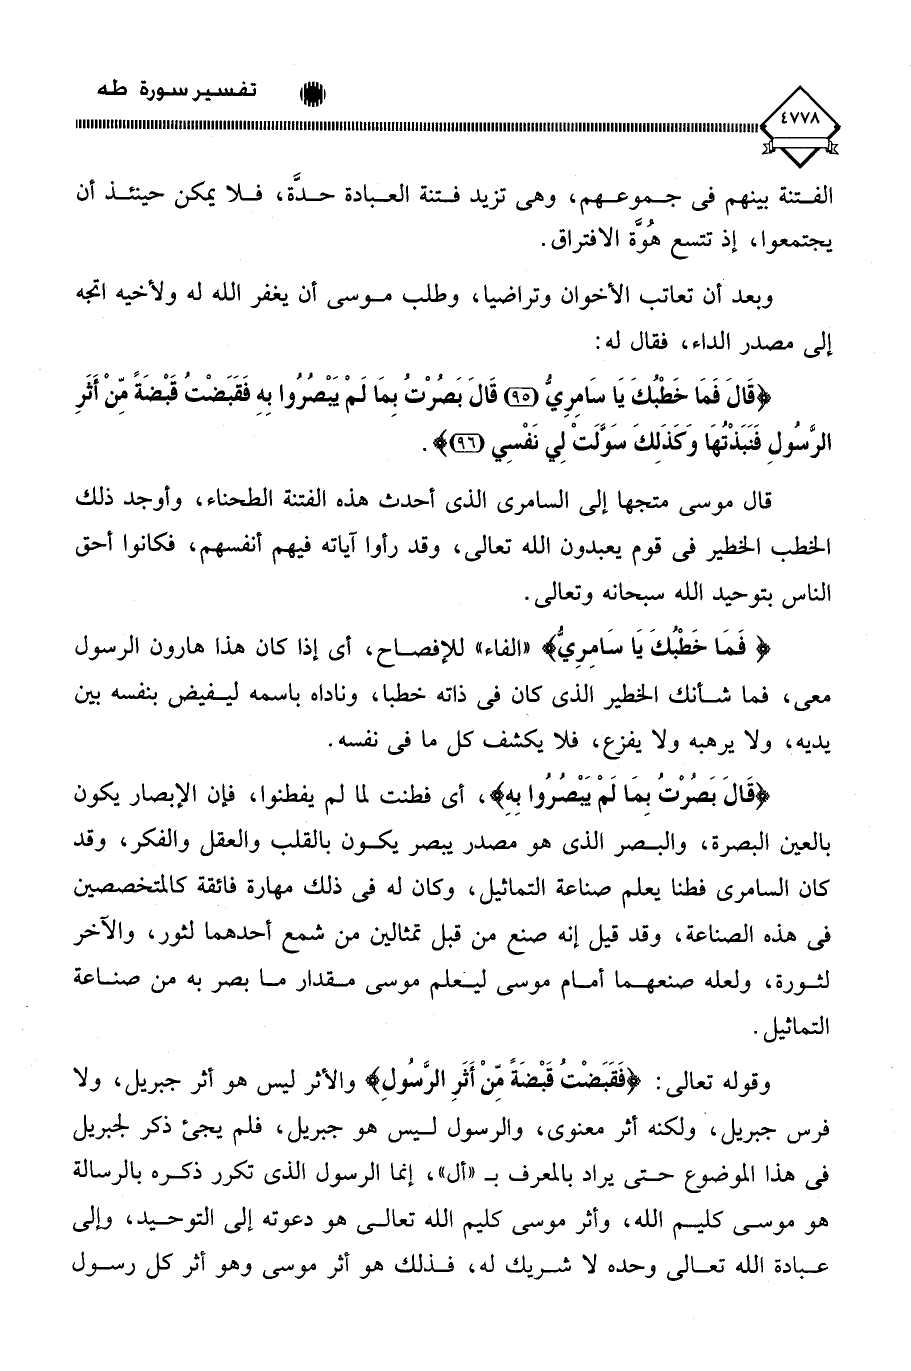 تفسير سورة طه
٤٧٧٨
الفتنة بينهم فى جموعهم، وهى تزيد فتنة العبادة حدَّة، فلا يمكن حينئذ أن
يجتمعوا، إذ تتسع هُوَّة الافتراق.
وبعد أن تعاتب الأخوان وتراضيا، وطلب موسى أن يغفر الله له ولأخيه اتجه
إلى مصدر الداء، فقال له:
﴿قَالَ فَمَا خَطْبُكَ يَا سَامِرِيُّ (٩٥) قَالَ بَصُرْتُ بِمَا لَمْ يَبْصُرُوا بِهِ فَقَبَضْتُ قَبْضَةً مِّنْ أَثَرِ
الرَّسُولِ فَنَبَذْتُهَا وَكَذَلِكَ سَوَّلَتْ لِي نَفْسِي (٩٦)﴾.
قال موسى متجها إلى السامرى الذى أحدث هذه الفتنة الطحناء، وأوجد ذلك
الخطب الخطير فى قوم يعبدون الله تعالى، وقد رأوا آياته فيهم أنفسهم، فكانوا أحق
الناس بتوحيد الله سبحانه وتعالى.
﴿ فَمَا خَطْبُكَ يَا سَامِرِيُّ﴾ «الفاء» للإفصاح، أى إذا كان هذا هارون الرسول
معى، فما شأنك الخطير الذى كان فى ذاته خطبا، وناداه باسمه ليفيض بنفسه بين
يديه، ولا يرهبه ولا يفزع، فلا يكشف كل ما فى نفسه.
﴿قَالَ بَصُرْتُ بِمَا لَمْ يَبْصُرُوا بِهِ﴾، أى فطنت لما لم يفطنوا، فإن الإبصار يكون
بالعين البصرة، والبصر الذى هو مصدر يبصر يكون بالقلب والعقل والفكر، وقد
كان السامرى فطنا يعلم صناعة التماثيل، وكان له فى ذلك مهارة فائقة كالمتخصصين
فى هذه الصناعة، وقد قيل إنه صنع من قبل تمثالين من شمع أحدهما لثور، والآخر
لثورة، ولعله صنعهما أمام موسى ليعلم موسى مقدار ما بصر به من صناعة
التماثيل.
وقوله تعالى: ﴿فَقَبَضْتُ قَبْضَةً مِّنْ أَثَرِ الرَّسُولِ﴾ والأثر ليس هو أثر جبريل، ولا
فرس جبريل، ولكنه أثر معنوى، والرسول ليس هو جبريل، فلم يجئ ذكر لجبريل
فى هذا الموضوع حتى يراد بالمعرف بـ «أل»، إنما الرسول الذى تكرر ذكره بالرسالة
هو موسى كليم الله، وأثر موسى كليم الله تعالى هو دعوته إلى التوحيد، وإلى
عبادة الله تعالى وحده لا شريك له، فذلك هو أثر موسى وهو أثر كل رسول